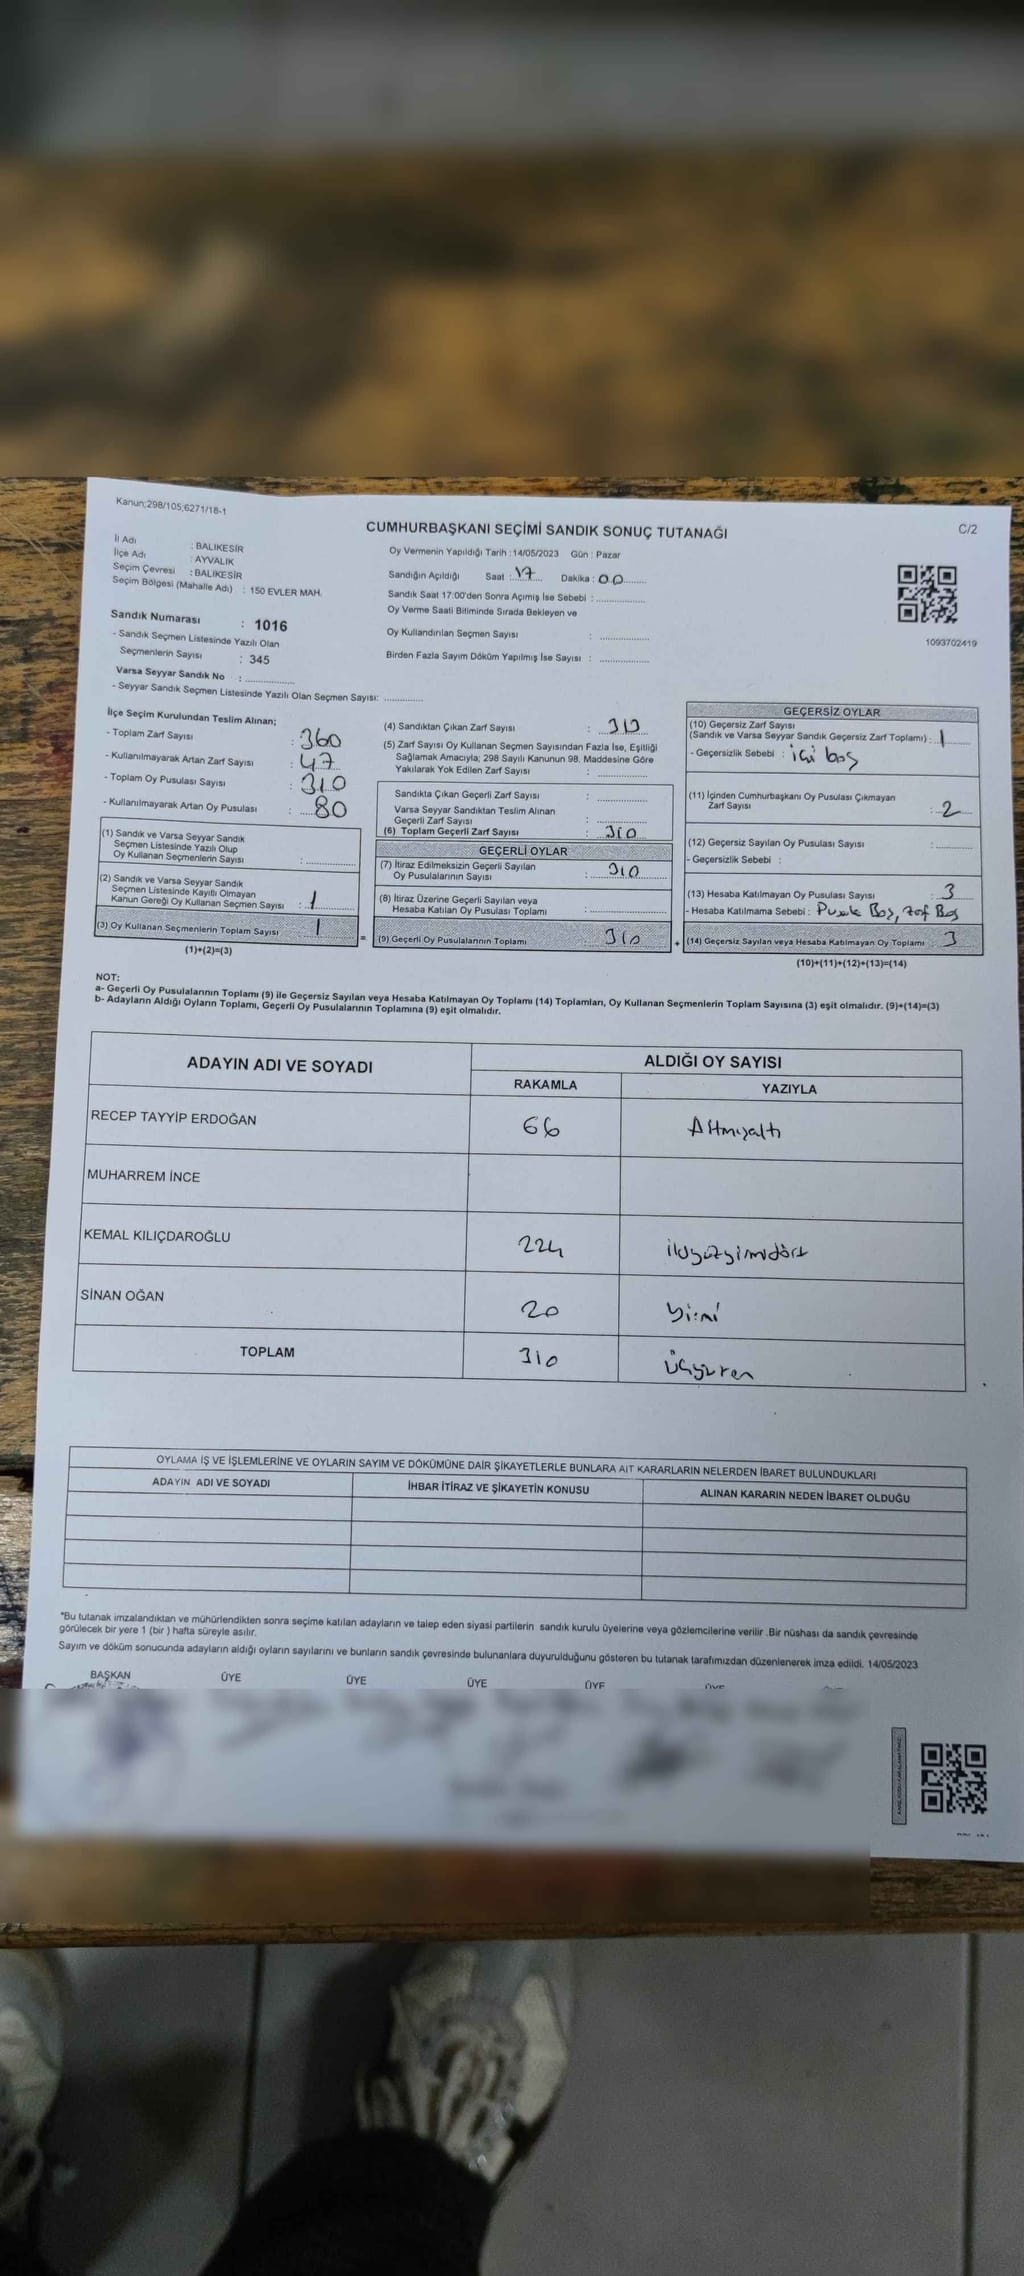 Kanun;298/105;6271/18-1
C/2
CUMHURBAŞKANI SEÇİMİ SANDIK SONUÇ TUTANAĞI
İl Adı : BALIKESİR
İlçe Adı : AYVALIK
Seçim Çevresi : BALIKESİR
Seçim Bölgesi (Mahalle Adı) : 150 EVLER MAH.
Sandık Numarası : 1016
- Sandık Seçmen Listesinde Yazılı Olan
Seçmenlerin Sayısı : 345
Varsa Seyyar Sandık No : ..............
- Seyyar Sandık Seçmen Listesinde Yazılı Olan Seçmen Sayısı: ............
Oy Vermenin Yapıldığı Tarih :14/05/2023 Gün : Pazar
Sandığın Açıldığı Saat : 17 Dakika : 00
Sandık Saat 17:00'den Sonra Açımış İse Sebebi : ..............
Oy Verme Saati Bitiminde Sırada Bekleyen ve
Oy Kullandırılan Seçmen Sayısı : ..............
Birden Fazla Sayım Döküm Yapılmış İse Sayısı : ..............
1093702419
İlçe Seçim Kurulundan Teslim Alınan;
- Toplam Zarf Sayısı : 360
- Kullanılmayarak Artan Zarf Sayısı : 47
- Toplam Oy Pusulası Sayısı : 310
- Kullanılmayarak Artan Oy Pusulası : 80
(1) Sandık ve Varsa Seyyar Sandık
Seçmen Listesinde Yazılı Olup
Oy Kullanan Seçmenlerin Sayısı : ..............
(2) Sandık ve Varsa Seyyar Sandık
Seçmen Listesinde Kayıtlı Olmayan
Kanun Gereği Oy Kullanan Seçmen Sayısı : 1
(3) Oy Kullanan Seçmenlerin Toplam Sayısı 1
(1)+(2)=(3)
(4) Sandıktan Çıkan Zarf Sayısı : 313
(5) Zarf Sayısı Oy Kullanan Seçmen Sayısından Fazla İse, Eşitliği
Sağlamak Amacıyla; 298 Sayılı Kanunun 98. Maddesine Göre
Yakılarak Yok Edilen Zarf Sayısı : ..............
Sandıkta Çıkan Geçerli Zarf Sayısı : ..............
Varsa Seyyar Sandıktan Teslim Alınan
Geçerli Zarf Sayısı : ..............
(6) Toplam Geçerli Zarf Sayısı : 310
GEÇERLİ OYLAR
(7) İtiraz Edilmeksizin Geçerli Sayılan
Oy Pusulalarının Sayısı : 310
(8) İtiraz Üzerine Geçerli Sayılan veya
Hesaba Katılan Oy Pusulası Toplamı : ..............
= (9) Geçerli Oy Pusulalarının Toplamı 310 +
GEÇERSİZ OYLAR
(10) Geçersiz Zarf Sayısı
(Sandık ve Varsa Seyyar Sandık Geçersiz Zarf Toplamı) : 1
- Geçersizlik Sebebi : içi boş
(11) İçinden Cumhurbaşkanı Oy Pusulası Çıkmayan
Zarf Sayısı : 2
(12) Geçersiz Sayılan Oy Pusulası Sayısı : ..........
- Geçersizlik Sebebi :
(13) Hesaba Katılmayan Oy Pusulası Sayısı : 3
- Hesaba Katılmama Sebebi : Boş, Zarf Boş
(14) Geçersiz Sayılan veya Hesaba Katılmayan Oy Toplamı 3
(10)+(11)+(12)+(13)=(14)
NOT:
a- Geçerli Oy Pusulalarının Toplamı (9) ile Geçersiz Sayılan veya Hesaba Katılmayan Oy Toplamı (14) Toplamları, Oy Kullanan Seçmenlerin Toplam Sayısına (3) eşit olmalıdır. (9)+(14)=(3)
b- Adayların Aldığı Oyların Toplamı, Geçerli Oy Pusulalarının Toplamına (9) eşit olmalıdır.
ADAYIN ADI VE SOYADI ALDIĞI OY SAYISI
RAKAMLA YAZIYLA
RECEP TAYYİP ERDOĞAN 66 Altmışaltı
MUHARREM İNCE
KEMAL KILIÇDAROĞLU 224 ikiyüzyirmidört
SİNAN OĞAN 20 yirmi
TOPLAM 310 üçyüzon
OYLAMA İŞ VE İŞLEMLERİNE VE OYLARIN SAYIM VE DÖKÜMÜNE DAİR ŞİKAYETLERLE BUNLARA AIT KARARLARIN NELERDEN İBARET BULUNDUKLARI
ADAYIN ADI VE SOYADI İHBAR İTİRAZ VE ŞİKAYETİN KONUSU ALINAN KARARIN NEDEN İBARET OLDUĞU
*Bu tutanak imzalandıktan ve mühürlendikten sonra seçime katılan adayların ve talep eden siyasi partilerin sandık kurulu üyelerine veya gözlemcilerine verilir .Bir nüshası da sandık çevresinde
görülecek bir yere 1 (bir ) hafta süreyle asılır.
Sayım ve döküm sonucunda adayların aldığı oyların sayılarını ve bunların sandık çevresinde bulunanlara duyurulduğunu gösteren bu tutanak tarafımızdan düzenlenerek imza edildi. 14/05/2023
BAŞKAN ÜYE ÜYE ÜYE ÜYE